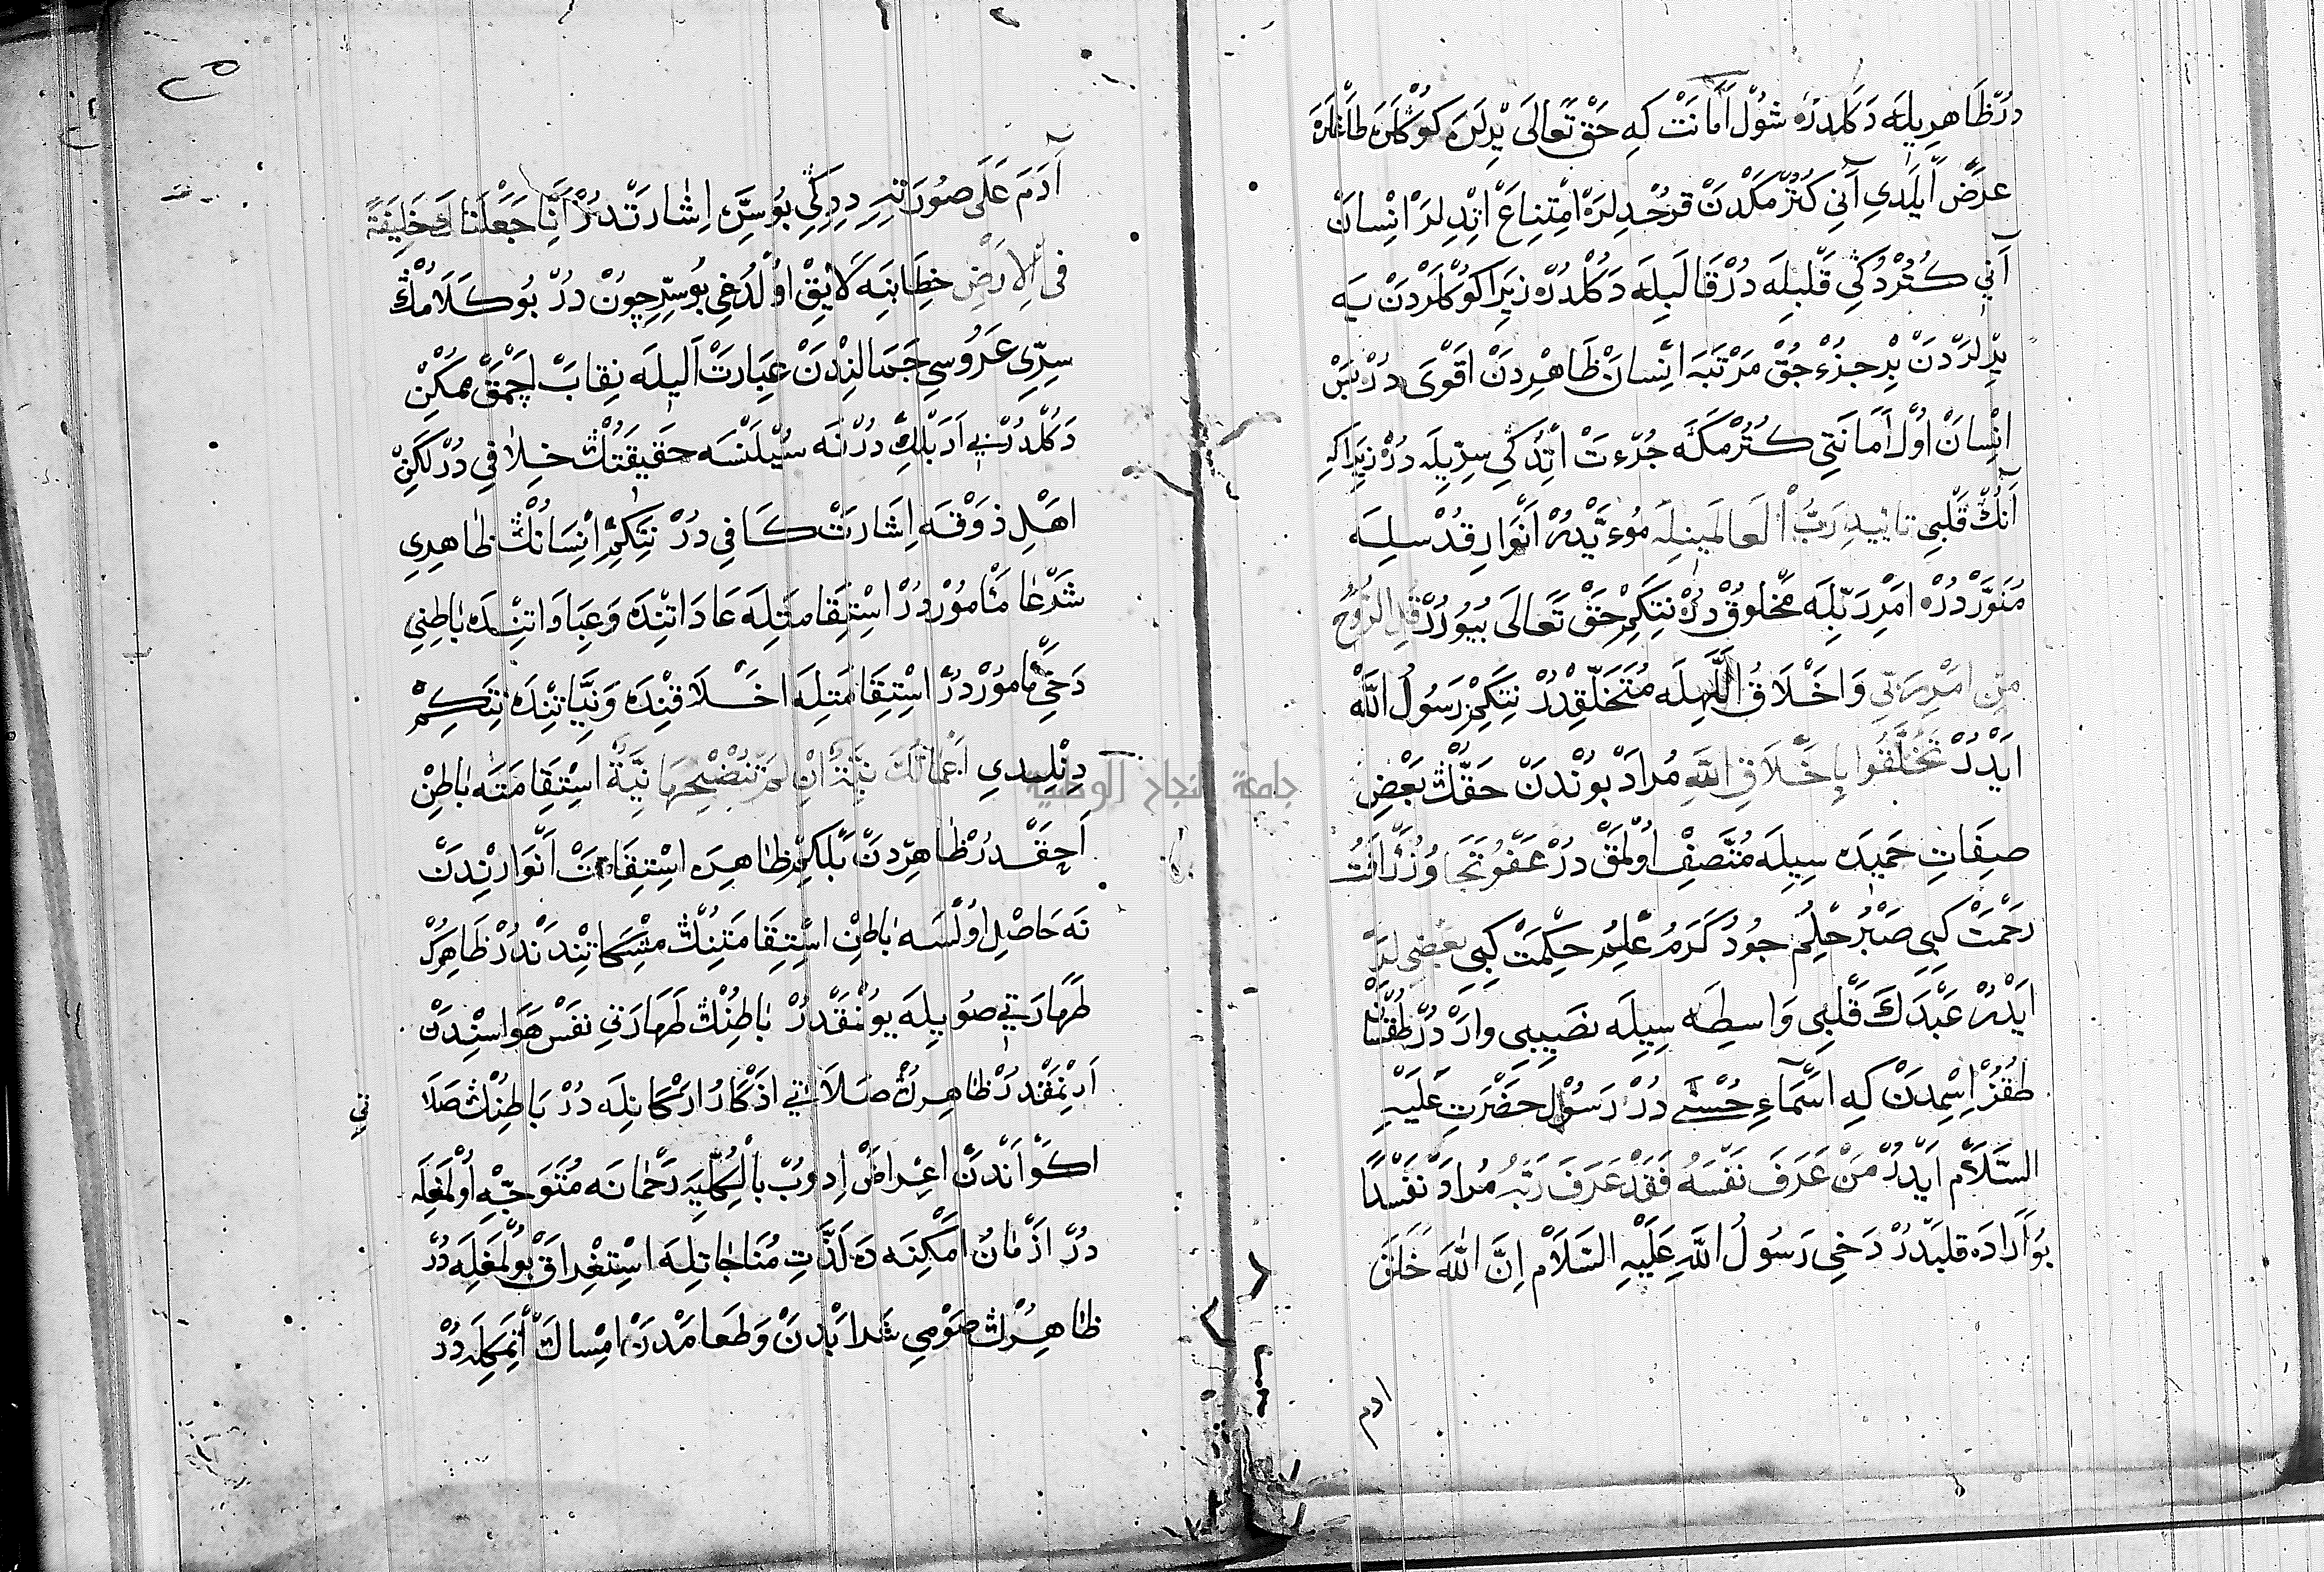 دُرْ ظَاهِرِيلَه دَكُلدُرْ شُولْ اَمَانَتْ كِه حَقْ تَعَالَى يِرلَرَه كُوكْلَرَه طَاغْلَرَه
عَرْضْ اَيلَدِي آنِي كُتُرْمَكْدَنْ قَرْجُدِلَرْ اِمْتِنَاعْ اِتْدِلَرْ اِنْسَانْ
آنِي كُتُرْدُكِي قَلْبِلَه دُرْ قَالَبِلَه دَكُلدُرْ زِيرَا كُوكْلَرْدَنْ يَه
يِرْلَرْدَنْ بِرْ جُزْءْ جُقْ مَرْتَبَه اِنْسَانْ ظَاهِرِدَنْ اَقْوَى دُرْ بَسْ
اِنْسَانْ اُولْ اَمَانَتِي كُتُرْمَكَه جُرْءَتْ اِتْدُكِي سِرِّيلَه دُرْ زِيرَا كِه
آنُكْ قَلْبِي تَايِيدِ رَبُّ الْعَالَمِينِلَه مُوءَيَّدْدُرْ اَنْوَارِ قُدْسِلَه
مُنَوَّرْدُرْ اَمْرِ رَبِّلَه مَخْلُوقْ دُرْ نِتَكِمْ حَقْ تَعَالَى بُيُورُرْ قُلِ الرُّوحُ
مِنْ اَمْرِ رَبِّي وَاَخْلَاقُ اللَّهِلَه مُتَخَلِّقْدُرْ نِتَكِمْ رَسُولُ اللَّهْ
اَيْدُرْ تَخَلَّقُوا بِاَخْلَاقِ اللَّهِ مُرَادْ بُونْدَنْ حَقُّكْ بَعْضِ
صِفَاتِ حَمِيدَه سِيلَه مُتَّصِفْ اُولْمَقْ دُرْ عَفْوُ تَجَاوُزْ رَاْفَتْ
رَحْمَتْ كِبِي صَبْرُ حِلِمْ جُودُ كَرَمُ عِلِمْ حِكْمَتْ كِبِي بَعْضِي لَرْ
اَيْدُرْ عَبْدَكَ قَلْبِي وَاسِطَه سِيلَه نَصِيبِي وَارْ دُرْ طُقْسَانْ
طُقُزْ اِسِمْدَنْ كِه اَسْمَآءِ حُسْنَى دُرْ رَسُولْ حَضْرَتِ عَلَيْهِ
السَّلَامْ اَيْدُرْ مَنْ عَرَفَ نَفْسَهُ فَقَدْ عَرَفَ رَبَّهُ مُرَادْ نَفْسْدَنْ
بُو اَرَادَه قَلْبْدُرْ دَخِي رَسُولُ اللَّهِ عَلَيْهِ السَّلَامْ اِنَّ اللَّهَ خَلَقَ
ادم
آدَمَ عَلَى صُورَتِهِ دِدِكِي بُو سِرَّه اِشَارَتْدُرْ اِنَّا جَعَلْنَاكَ خَلِيفَةً
فِي الْاَرْضِ خِطَابِنَه لَايِقْ اُولْدُغِي بُو سِرِّجُونْ دُرْ بُو كَلَامُكْ
سِرِّي عَرُوسِي جَمَالِنْدَنْ عِبَارَتْ اَلِيلَه نِقَابْ اَچْمَقْ مُمْكِنْ
دَكُلدُرْ بِي اَدَبْلِكْ دُرْ نَه سُيْلَنْسَه حَقِيقَتُكْ خِلَافِي دُرْ لَكِنْ
اَهْلِ ذَوْقَه اِشَارَتْ كَافِي دُرْ نِتَكِمْ اِنْسَانُكْ ظَاهِرِي
شَرْعًا مَاْمُورْ دُرْ اِسْتِقَامَتِلَه عَادَاتِنْدَه وَعِبَادَاتِنْدَه بَاطِنِي
دَخِي مَاْمُورْ دُرْ اِسْتِقَامَتِلَه اَخْلَاقِنْدَه وَنِيَّاتِنْدَه نِتَكِمْ
دِنْلِدِي اَعْمَالُكَ نِيَّةٌ اِنْ لَمْ تُنْضِجْهَا نِيَّةٌ اِسْتِقَامَتَه بَاطِنْ
اَحَقْدُرْ ظَاهِرْدَنْ بَلْكِمْ ظَاهِرَه اِسْتِقَامَتْ اَنْوَارِنْدَنْ
نَه حَاصِلْ اُولْسَه بَاطِنْ اِسْتِقَامَتِنُكْ مِشْكَاتِنْدَنْدُرْ ظَاهِرُكْ
طَهَارَتِي صُويِلَه يُونْمَقْدُرْ بَاطِنُكْ طَهَارَتِي نَفْسْ هَوَاسِنْدَنْ
اَرِنْمَقْدُرْ ظَاهِرُكْ صَلَاتِي اَذْكَارُ اَرْكَانِلَه دُرْ بَاطِنُكْ صَلَا
تي
اَكْوَانْدَنْ اِعْرَاضْ اِدُوبْ بِالْكُلِّيَّه رَحْمَانَه مُتَوَجِّه اُولْمَغِلَه
دُرْ اَزْمَانُ اَمْكِنَه دَه لَذَّتِ مُنَاجَاتِلَه اِسْتِغْرَاقْ بُولْمَغِلَه دُرْ
ظَاهِرُكْ صَوْمِي شَرَابْدَنْ وَطَعَامْدَنْ اِمْسَاكْ اِتْمَكِلَه دُرْ
جامعة النجاح الوطنية